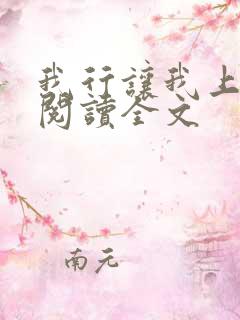 我行讓我上
閱讀全文
南元